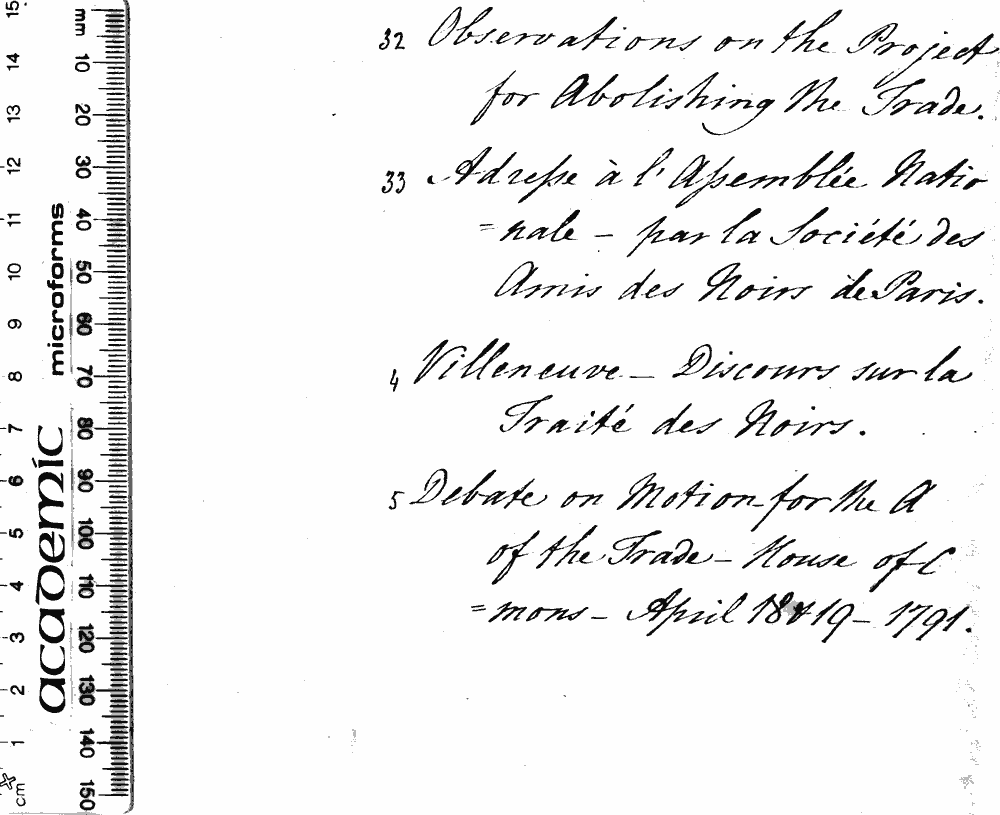 32 Observations on the Project
for Abolishing the Trade.
33 Adresse à l'Assemblée Natio
=nale – par la Société des
Amis des Noirs de Paris.
4 Villeneuve – Discours sur la
Traité des Noirs.
5 Debate on Motion for the A
of the Trade – House of C
=mons – April 18 & 19 – 1791.
mm 10 20 30 40 50 60 70 80 90 100 110 120 130 140 150
academic microforms
cm 1 2 3 4 5 6 7 8 9 10 11 12 13 14 15